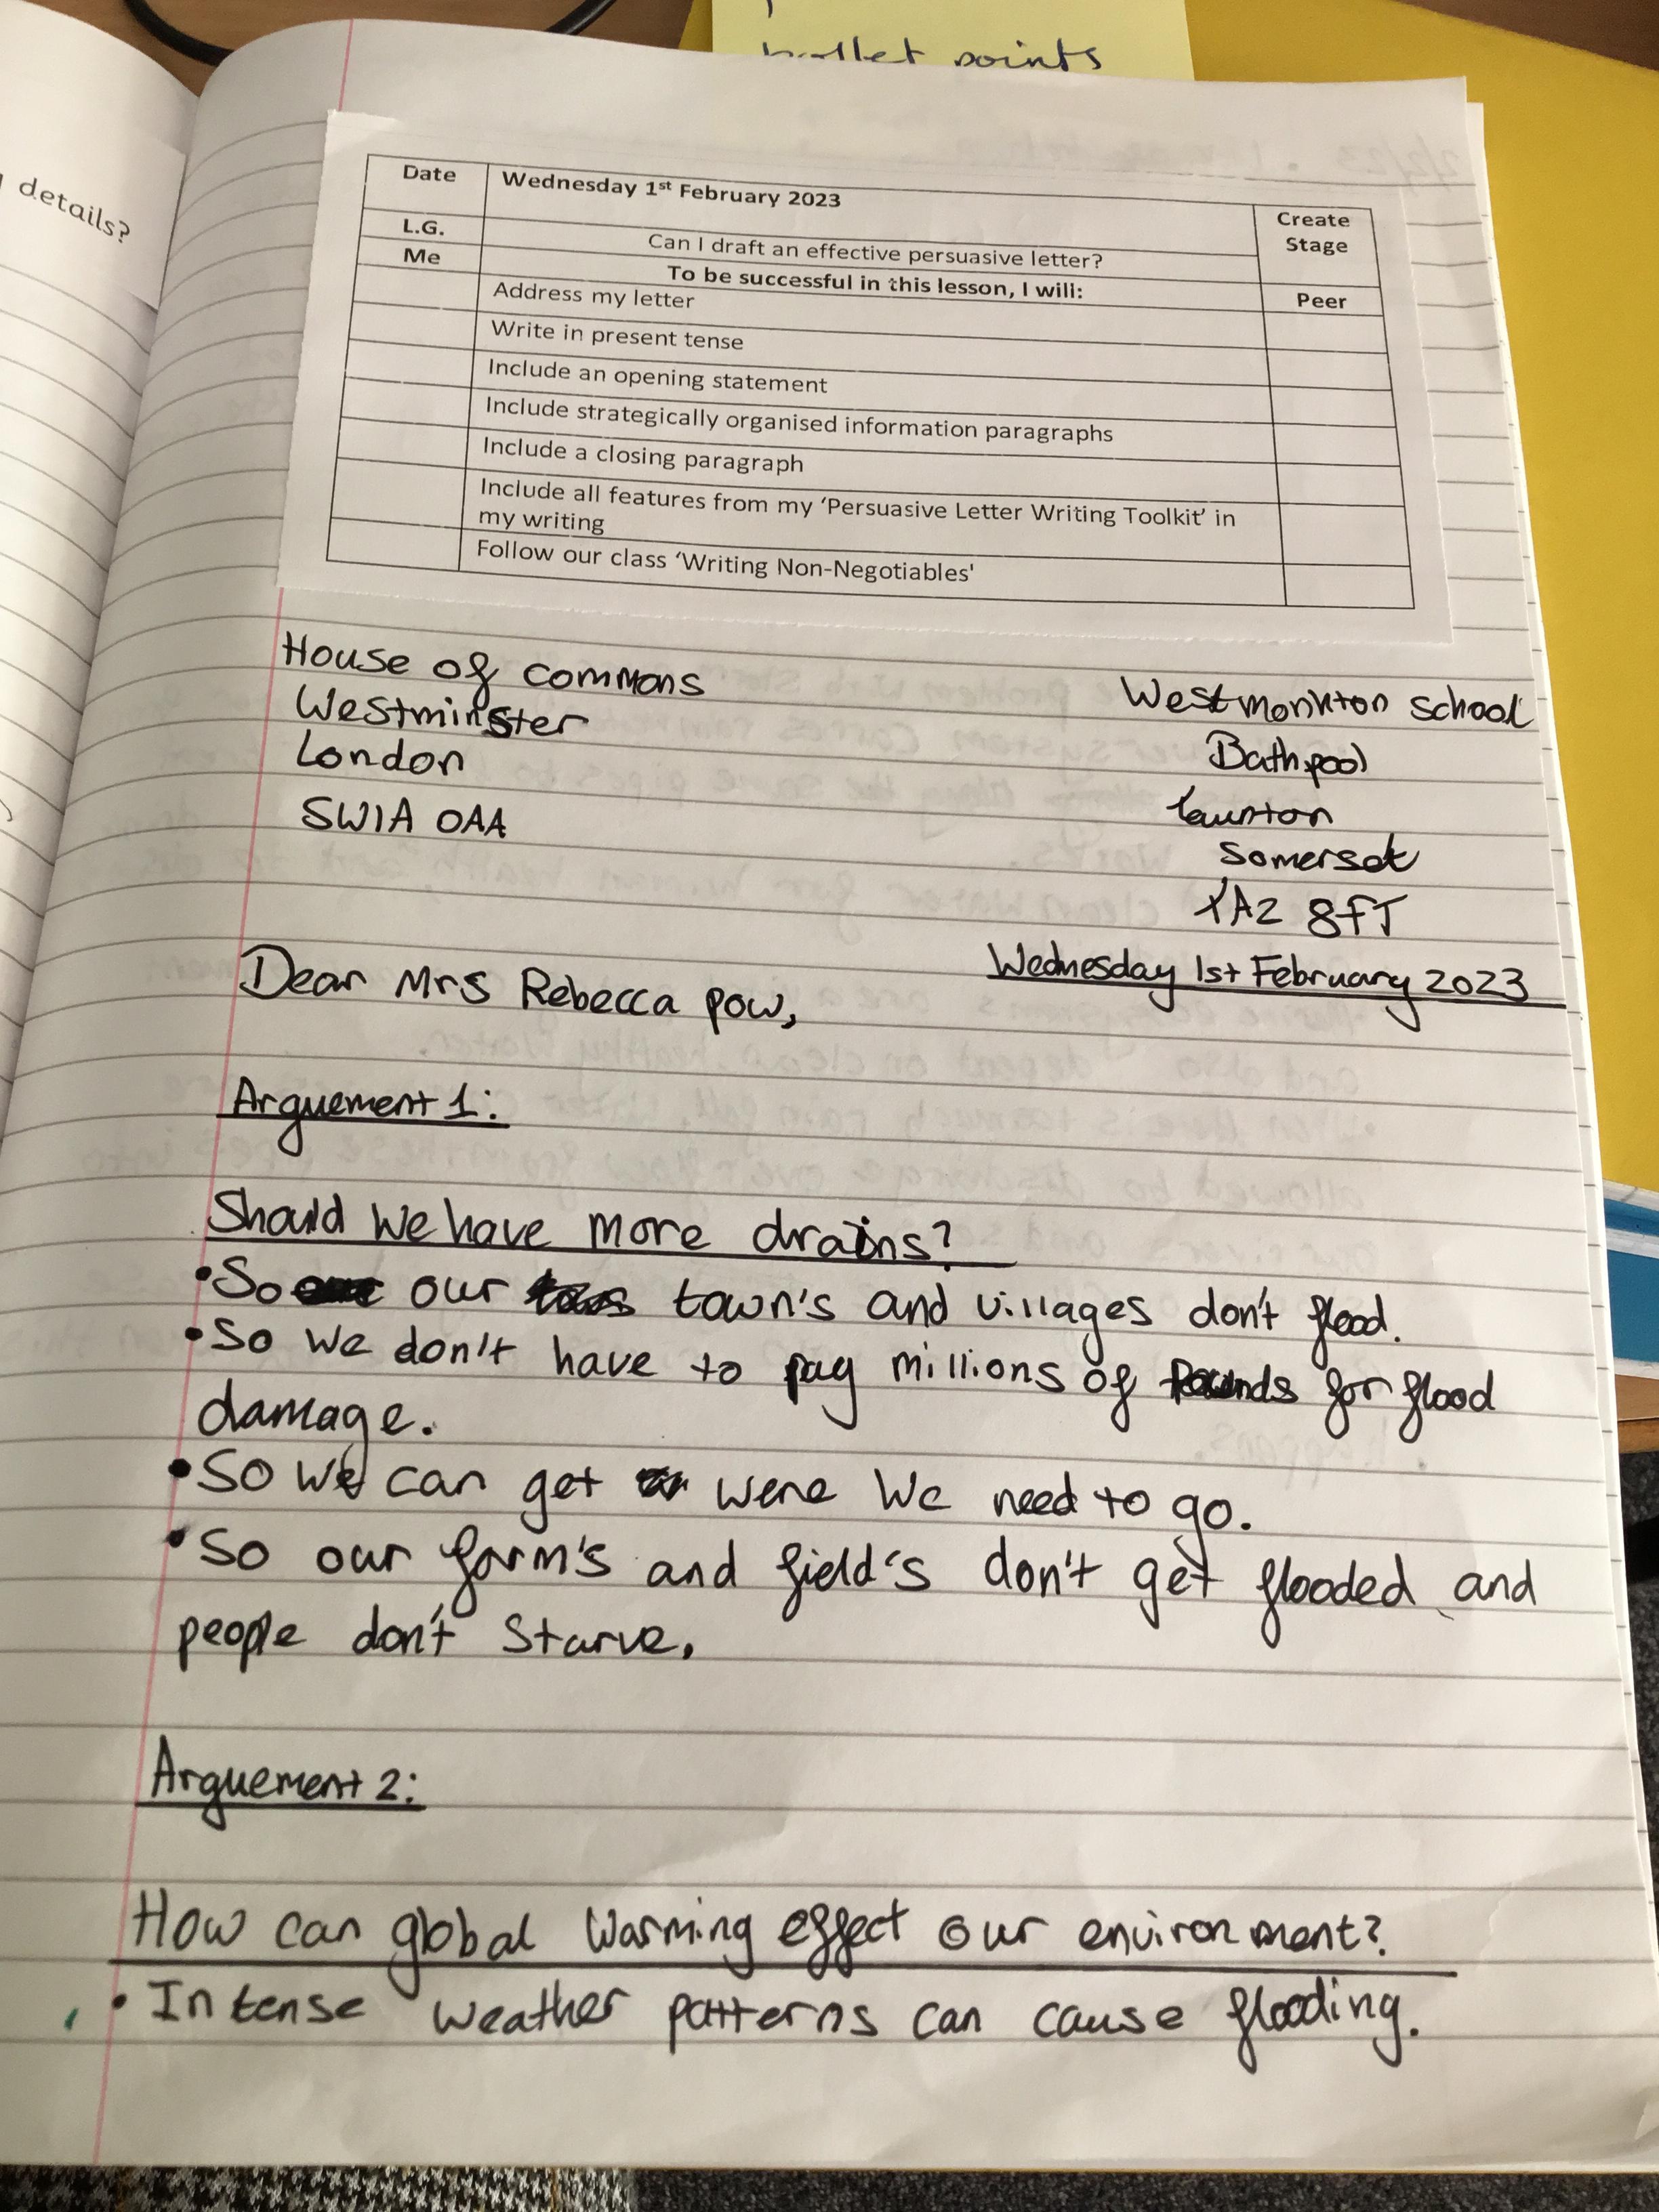 bullet points
details?
Date Wednesday 1st February 2023 Create Stage
L.G. Can I draft an effective persuasive letter?
Me To be successful in this lesson, I will: Peer
Address my letter
Write in present tense
Include an opening statement
Include strategically organised information paragraphs
Include a closing paragraph
Include all features from my ‘Persuasive Letter Writing Toolkit’ in
my writing
Follow our class ‘Writing Non-Negotiables'
House of commons
Westminster
London
SW1A 0AA
West monkton school
Bathpool
Taunton
Somerset
TA2 8FT
Wednesday 1st February 2023
Dear Mrs Rebecca pow,
Arguement 1:
Should We have more drains?
•So our town's and villages don't flood.
•So we don't have to pay millions of Pounds for flood
damage.
•So we can get were We need to go.
•So our farm's and field's don't get flooded and
people don't starve.
Arguement 2:
How can global warming effect our environment?
•Intense weather patterns can cause flooding.